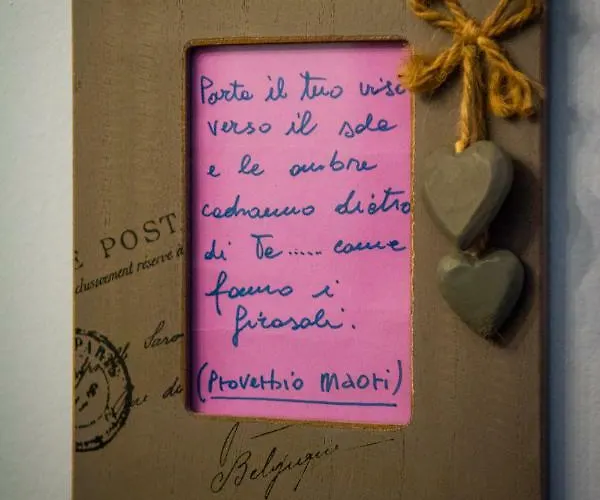 Porta il tuo viso
verso il sole
e le ombre
cadranno dietro
di te..... come
fanno i
girasoli.
(Proverbio Maori)
E POST
clusivement réservé a
PARIS
de
Belgique